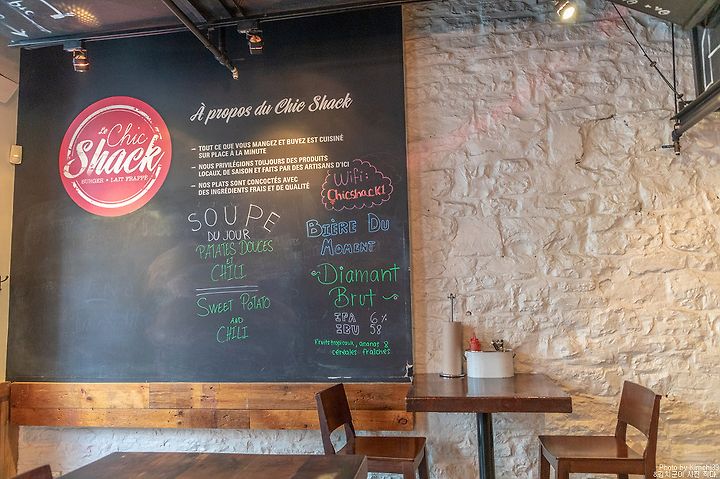 Le Chic
Shack
BURGER • LAIT FRAPPÉ
À propos du Chic Shack
– TOUT CE QUE VOUS MANGEZ ET BUVEZ EST CUISINÉ
SUR PLACE À LA MINUTE
– NOUS PRIVILÉGIONS TOUJOURS DES PRODUITS
LOCAUX, DE SAISON ET FAITS PAR DES ARTISANS D'ICI
– NOS PLATS SONT CONCOCTÉS AVEC
DES INGRÉDIENTS FRAIS ET DE QUALITÉ
Wifi:
Chicshack1
SOUPE
DU JOUR
PATATES DOUCES
ET
CHILI
SWEET POTATO
AND
CHILI
BIÈRE DU
MOMENT
Diamant
Brut
IPA 6%
IBU 58
Fruits tropicaux, ananas &
céréales fraîches
Photo by Kimchi39
&김치군이 사진 하다.